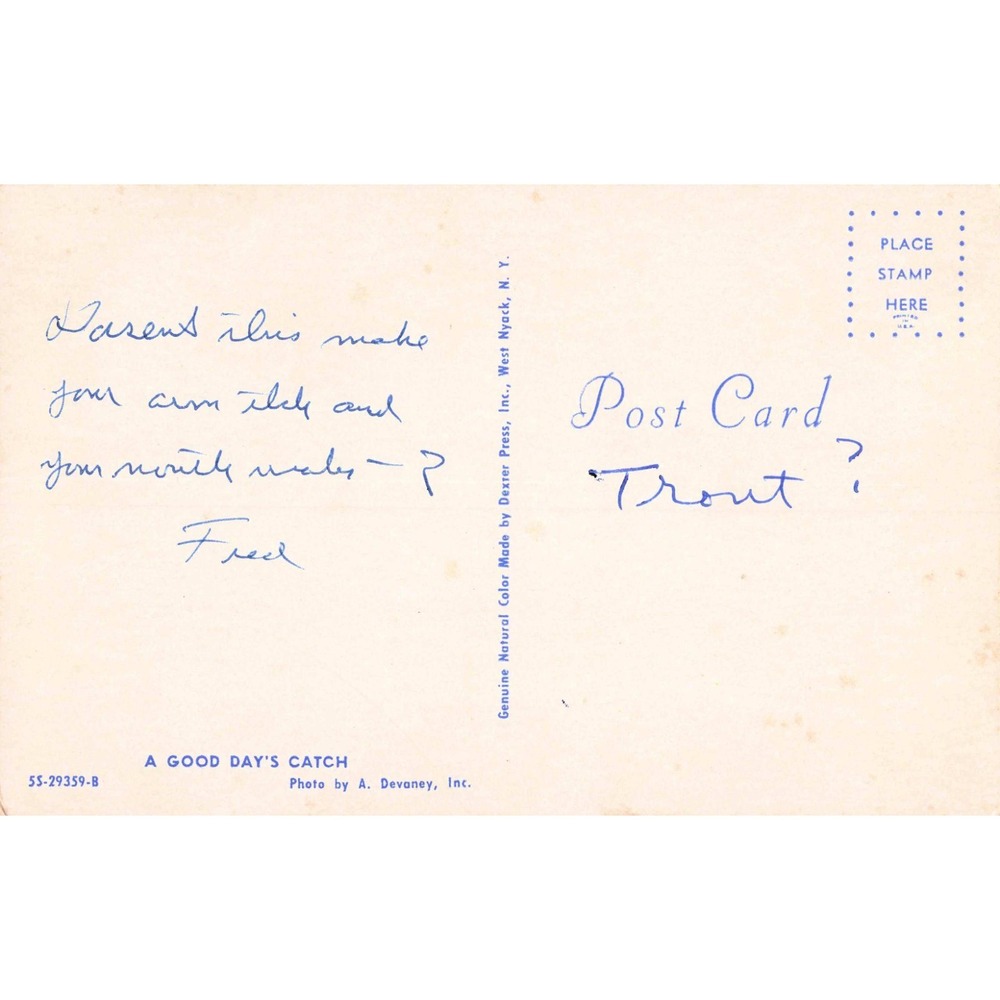 Dasent this make
your arm itch and
your mouth water — ?
Fred
A GOOD DAY'S CATCH
5S-29359-B
Photo by A. Devaney, Inc.
Genuine Natural Color Made by Dexter Press, Inc., West Nyack, N. Y.
PLACE
STAMP
HERE
PRINTED
IN
U.S.A.
Post Card
Trout ?